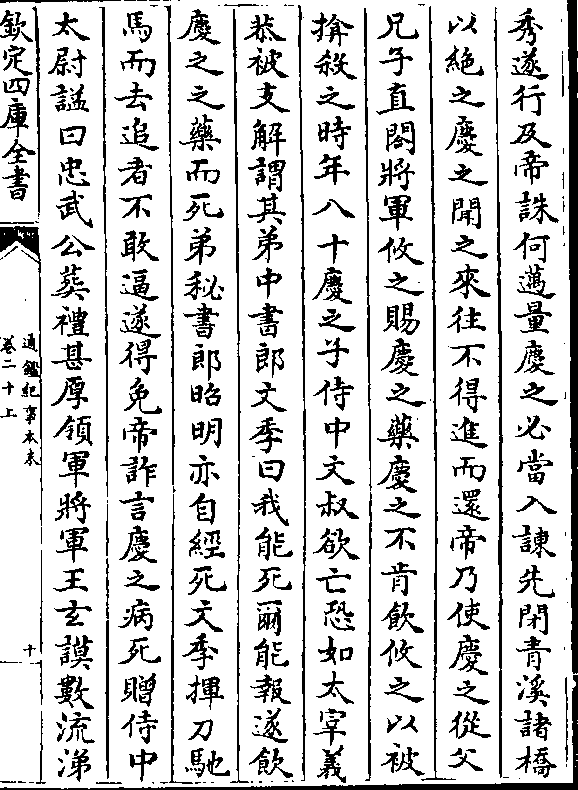 秀遂行及帝誅何邁量慶之必當入諫先閉青溪諸橋
以絶之慶之聞之來往不得進而還帝乃使慶之從父
兄子直閤將軍攸之賜慶之藥慶之不肯飲攸之以被
揜殺之時年八十慶之子侍中文叔欲亡恐如太宰義
恭被支解謂其弟中書郎文季曰我能死爾能報遂飲
慶之之藥而死弟秘書郎昭明亦自經死文季揮刀馳
馬而去追者不敢逼遂得免帝詐言慶之病死贈侍中
太尉諡曰忠武公葬禮甚厚領軍將軍王玄謨數流涕
欽定四庫全書
通鑑紀事本末
卷二十上
十